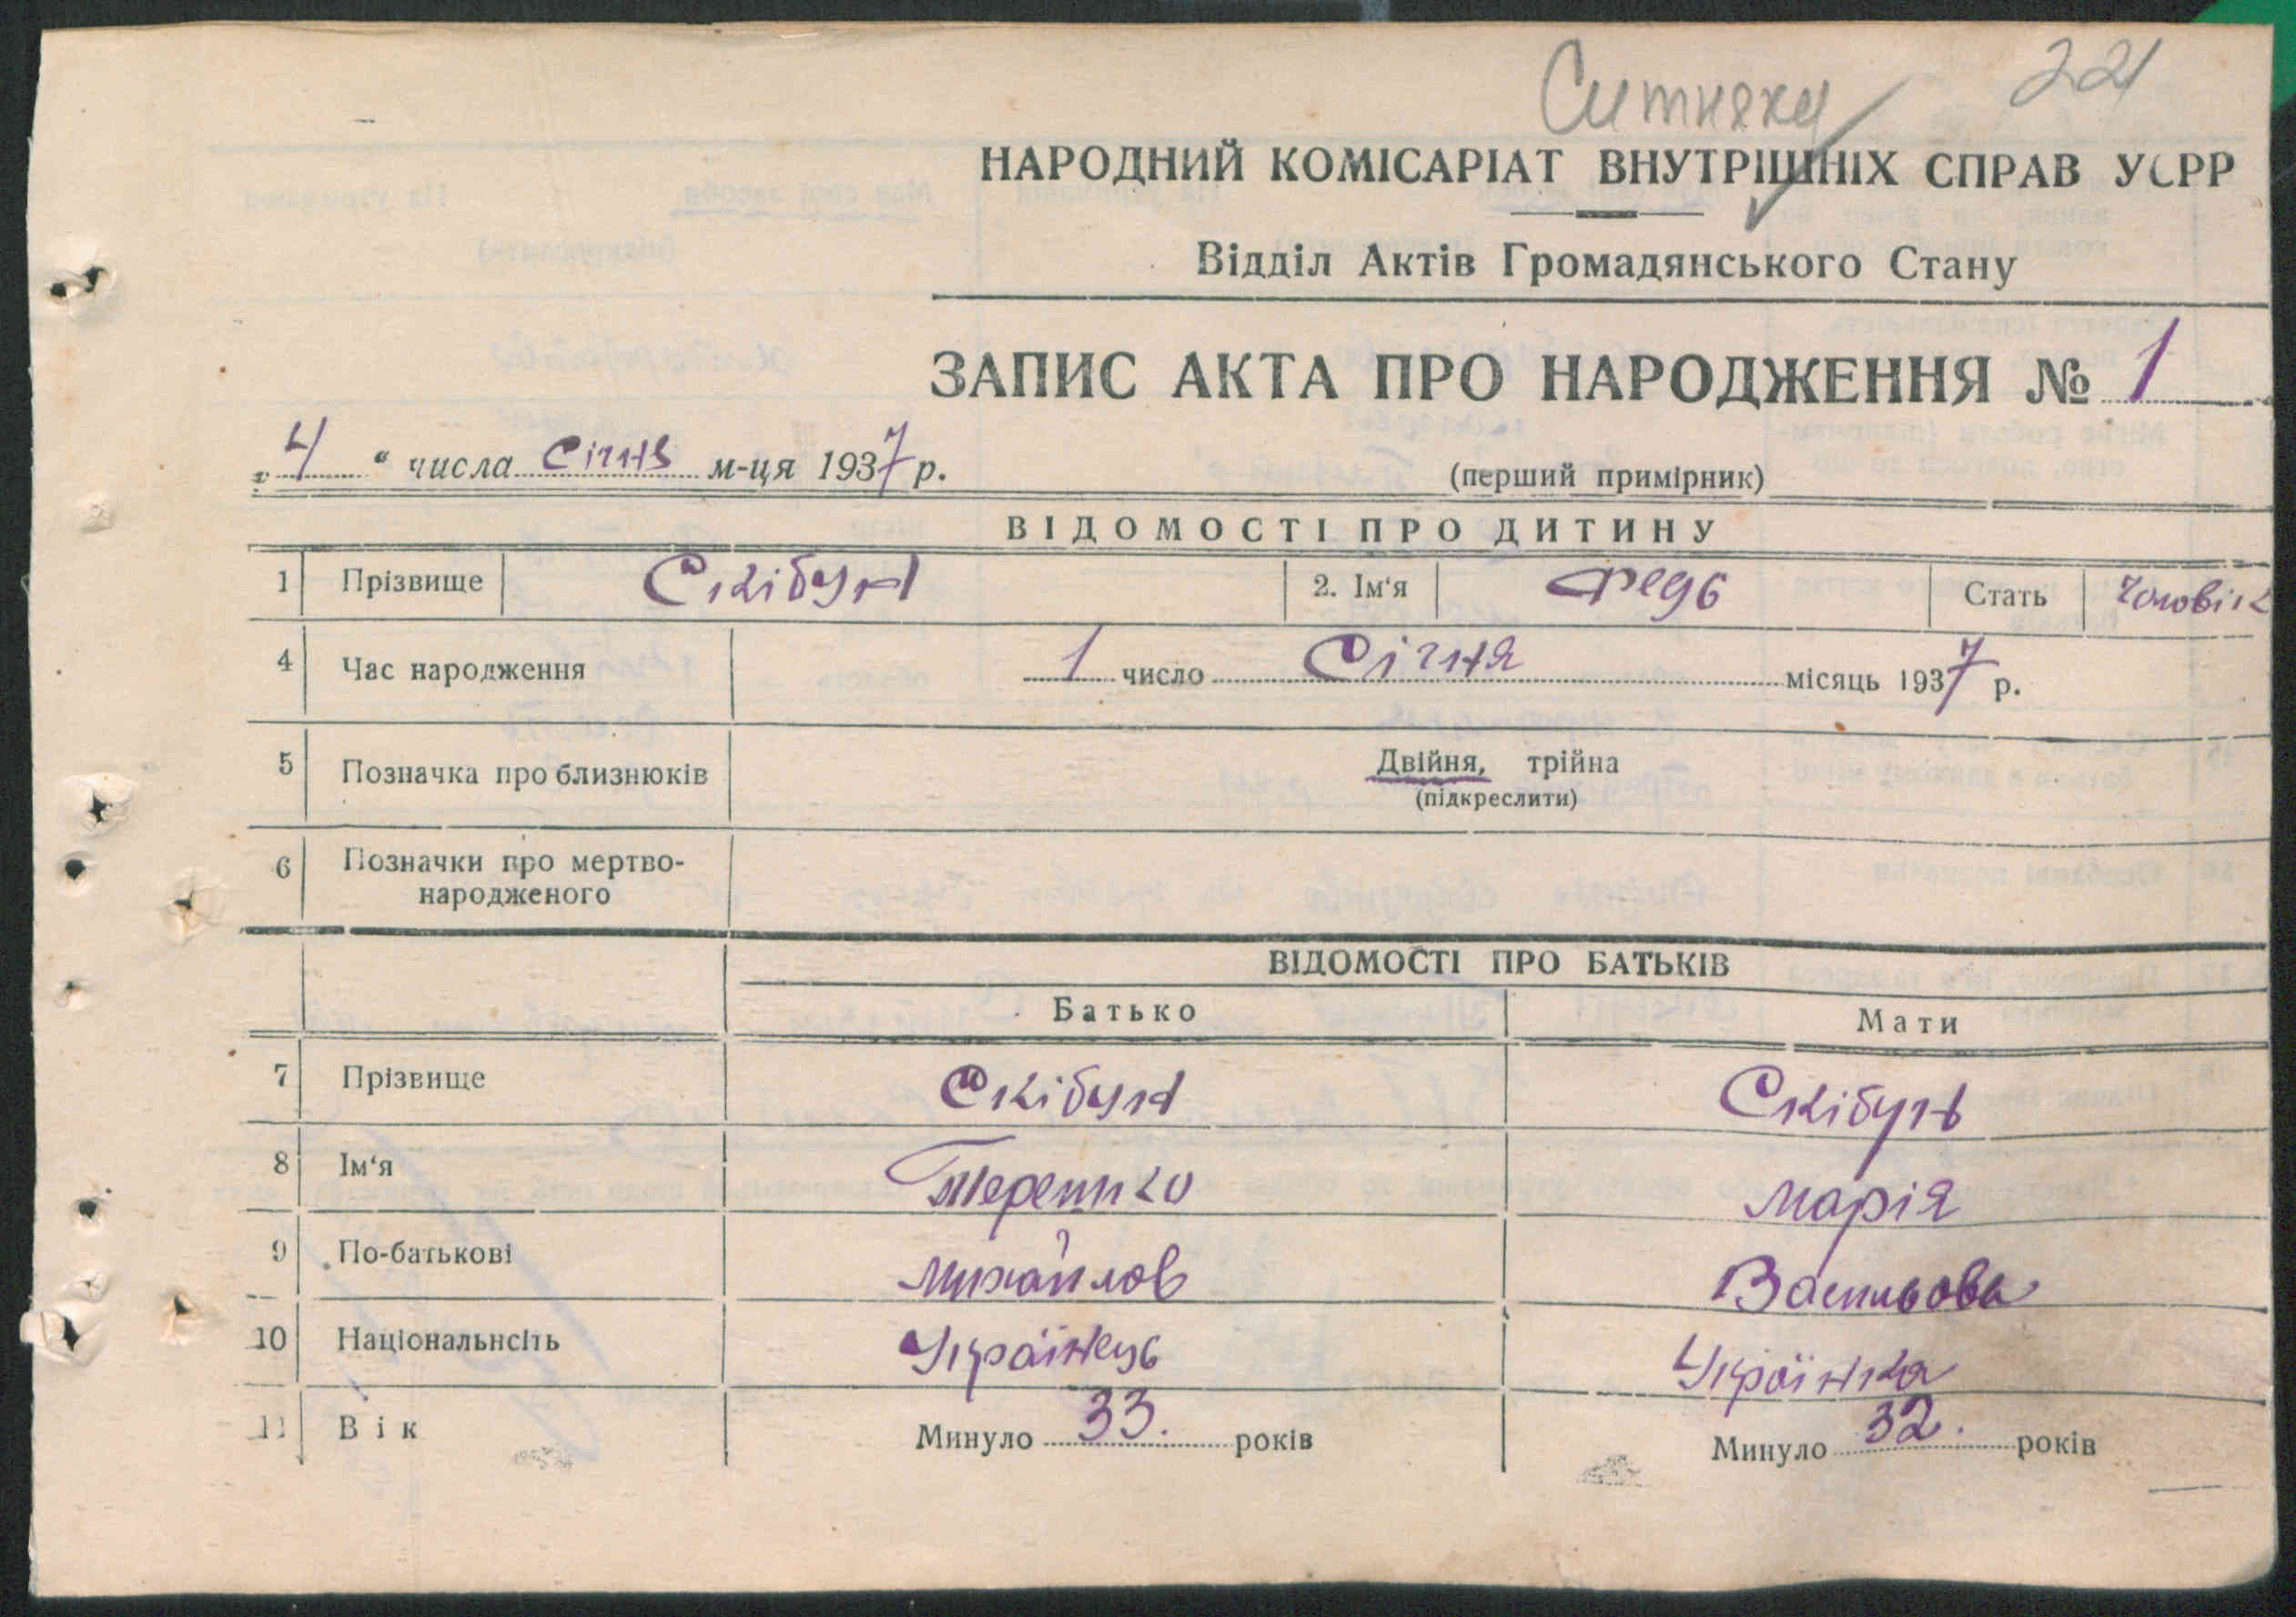 Ситняки 221
НАРОДНИЙ КОМІСАРІАТ ВНУТРІШНІХ СПРАВ УСРР
Відділ Актів Громадянського Стану
ЗАПИС АКТА ПРО НАРОДЖЕННЯ № 1
„ 4 “ числа Січня м-ця 1937 р.
(перший примірник)
ВІДОМОСТІ ПРО ДИТИНУ
1 Прізвище Скібун 2. Ім'я Федь Стать Чоловік
4 Час народження 1 число Січня місяць 1937 р.
5 Позначка про близнюків Двійня, трійна
(підкреслити)
6 Позначки про мертво-
народженого
ВІДОМОСТІ ПРО БАТЬКІВ
Батько Мати
7 Прізвище Скібун Скібунь
8 Ім'я Терешко Марія
9 По-батькові Михайлов Васильова
10 Національнсіть Українець Українка
11 Вік Минуло 33. років Минуло 32. років